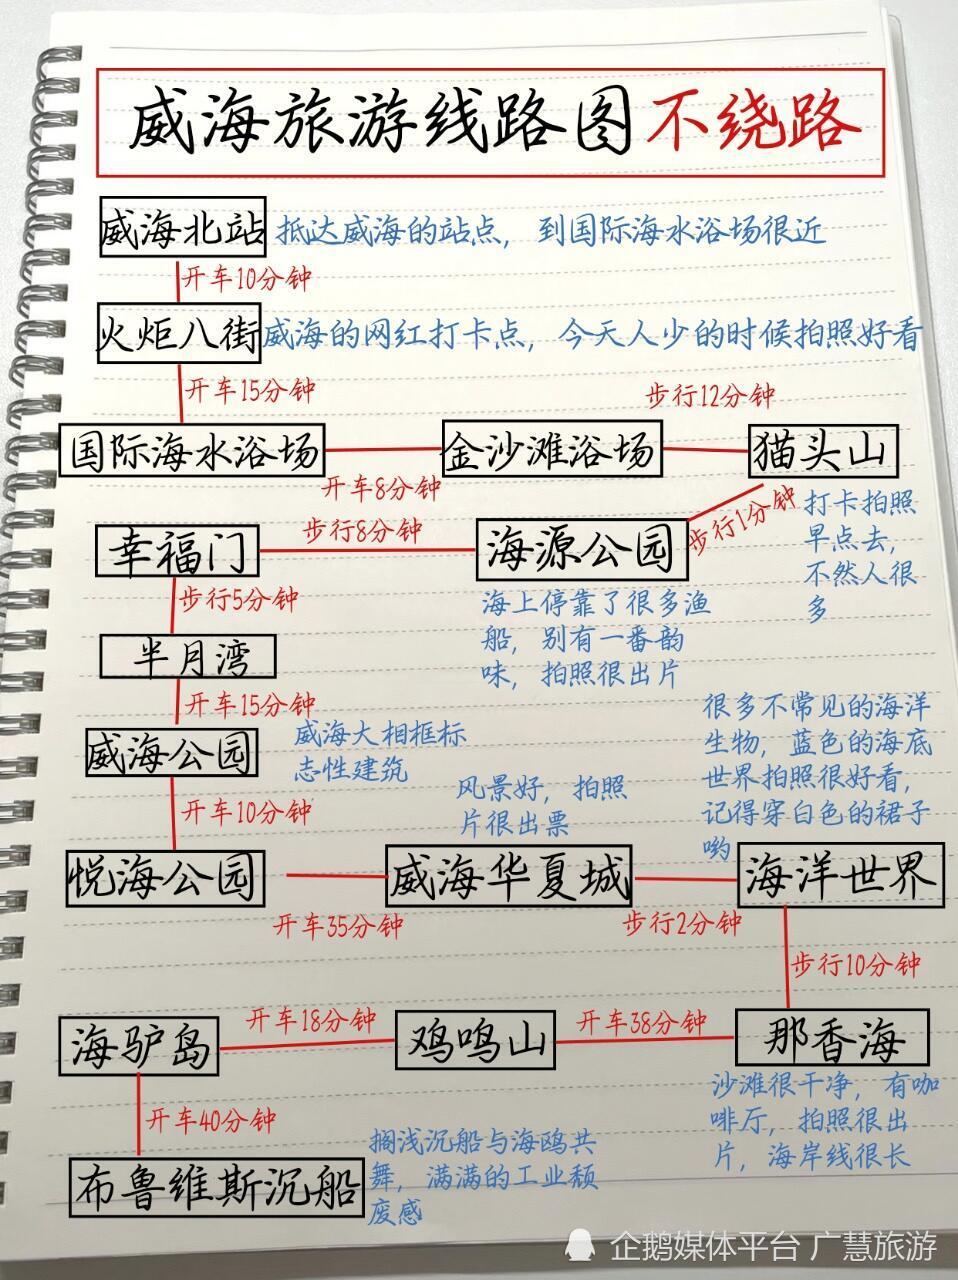 威海旅游线路图不绕路
威海北站 抵达威海的站点，到国际海水浴场很近
开车10分钟
火炬八街 威海的网红打卡点，今天人少的时候拍照好看
开车15分钟
步行12分钟
国际海水浴场 金沙滩浴场 猫头山
开车8分钟
步行1分钟
打卡拍照
早点去，
不然人很
多
步行8分钟
幸福门 海源公园
海上停靠了很多渔
船，别有一番韵
味，拍照很出片
步行5分钟
半月湾
开车15分钟
威海公园
威海大相框标
志性建筑
开车10分钟
风景好，拍照
片很出票
很多不常见的海洋
生物，蓝色的海底
世界拍照很好看，
记得穿白色的裙子
哟
悦海公园 威海华夏城 海洋世界
开车35分钟
步行2分钟
步行10分钟
海驴岛 开车18分钟 鸡鸣山 开车38分钟 那香海
沙滩很干净，有咖
啡厅，拍照很出
片，海岸线很长
开车40分钟
布鲁维斯沉船
搁浅沉船与海鸥共
舞，满满的工业颓
废感
企鹅媒体平台 广慧旅游